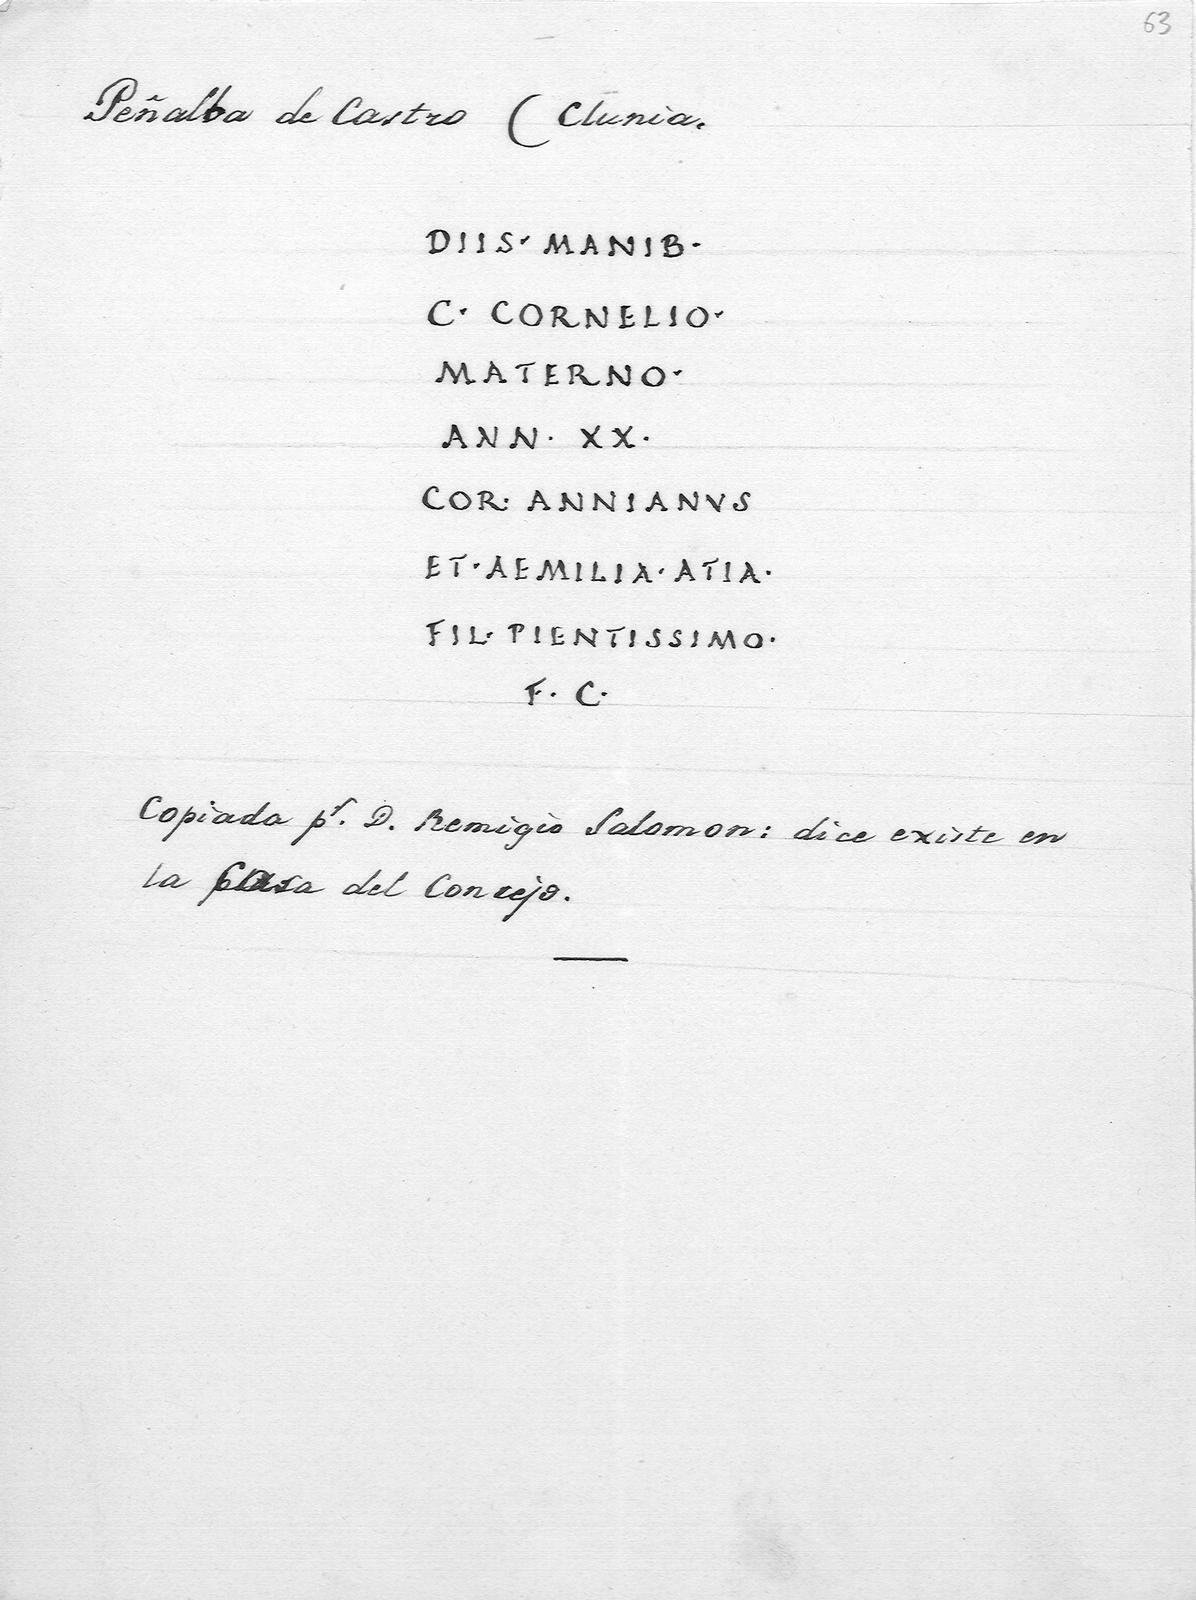 63
Peñalba de Castro ( Clunia.
DIIS· MANIB·
C· CORNELIO·
MATERNO·
ANN· XX·
COR· ANNIANVS
ET·AEMILIA·ATIA·
FIL· PIENTISSIMO·
F· C·
Copiada pr. D. Remigio Salomon: dice existe en
la Casa del Concejo.